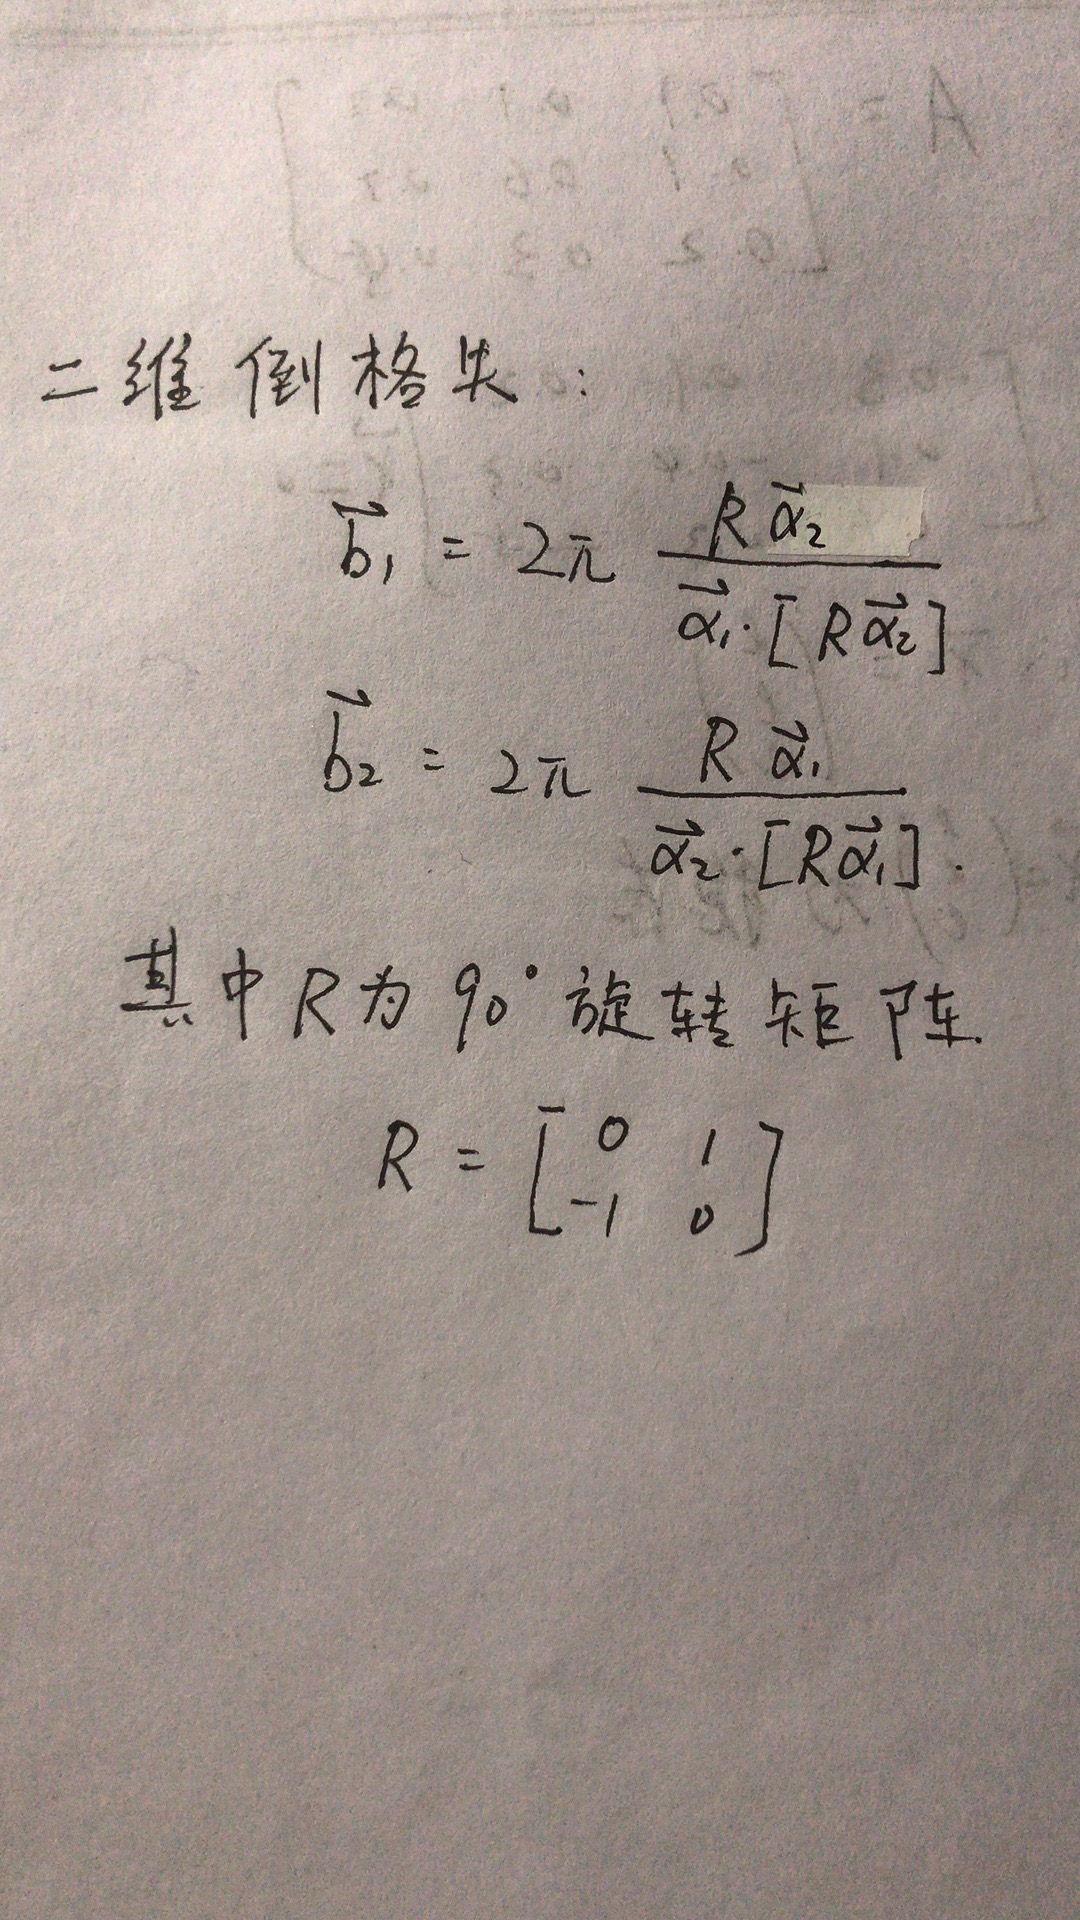 二维倒格失:
b⃗₁ = 2π Rα⃗₂ / α⃗₁·[Rα⃗₂]
b⃗₂ = 2π Rα⃗₁ / α⃗₂·[Rα⃗₁].
其中R为90°旋转矩阵.
R = [0 1
-1 0]